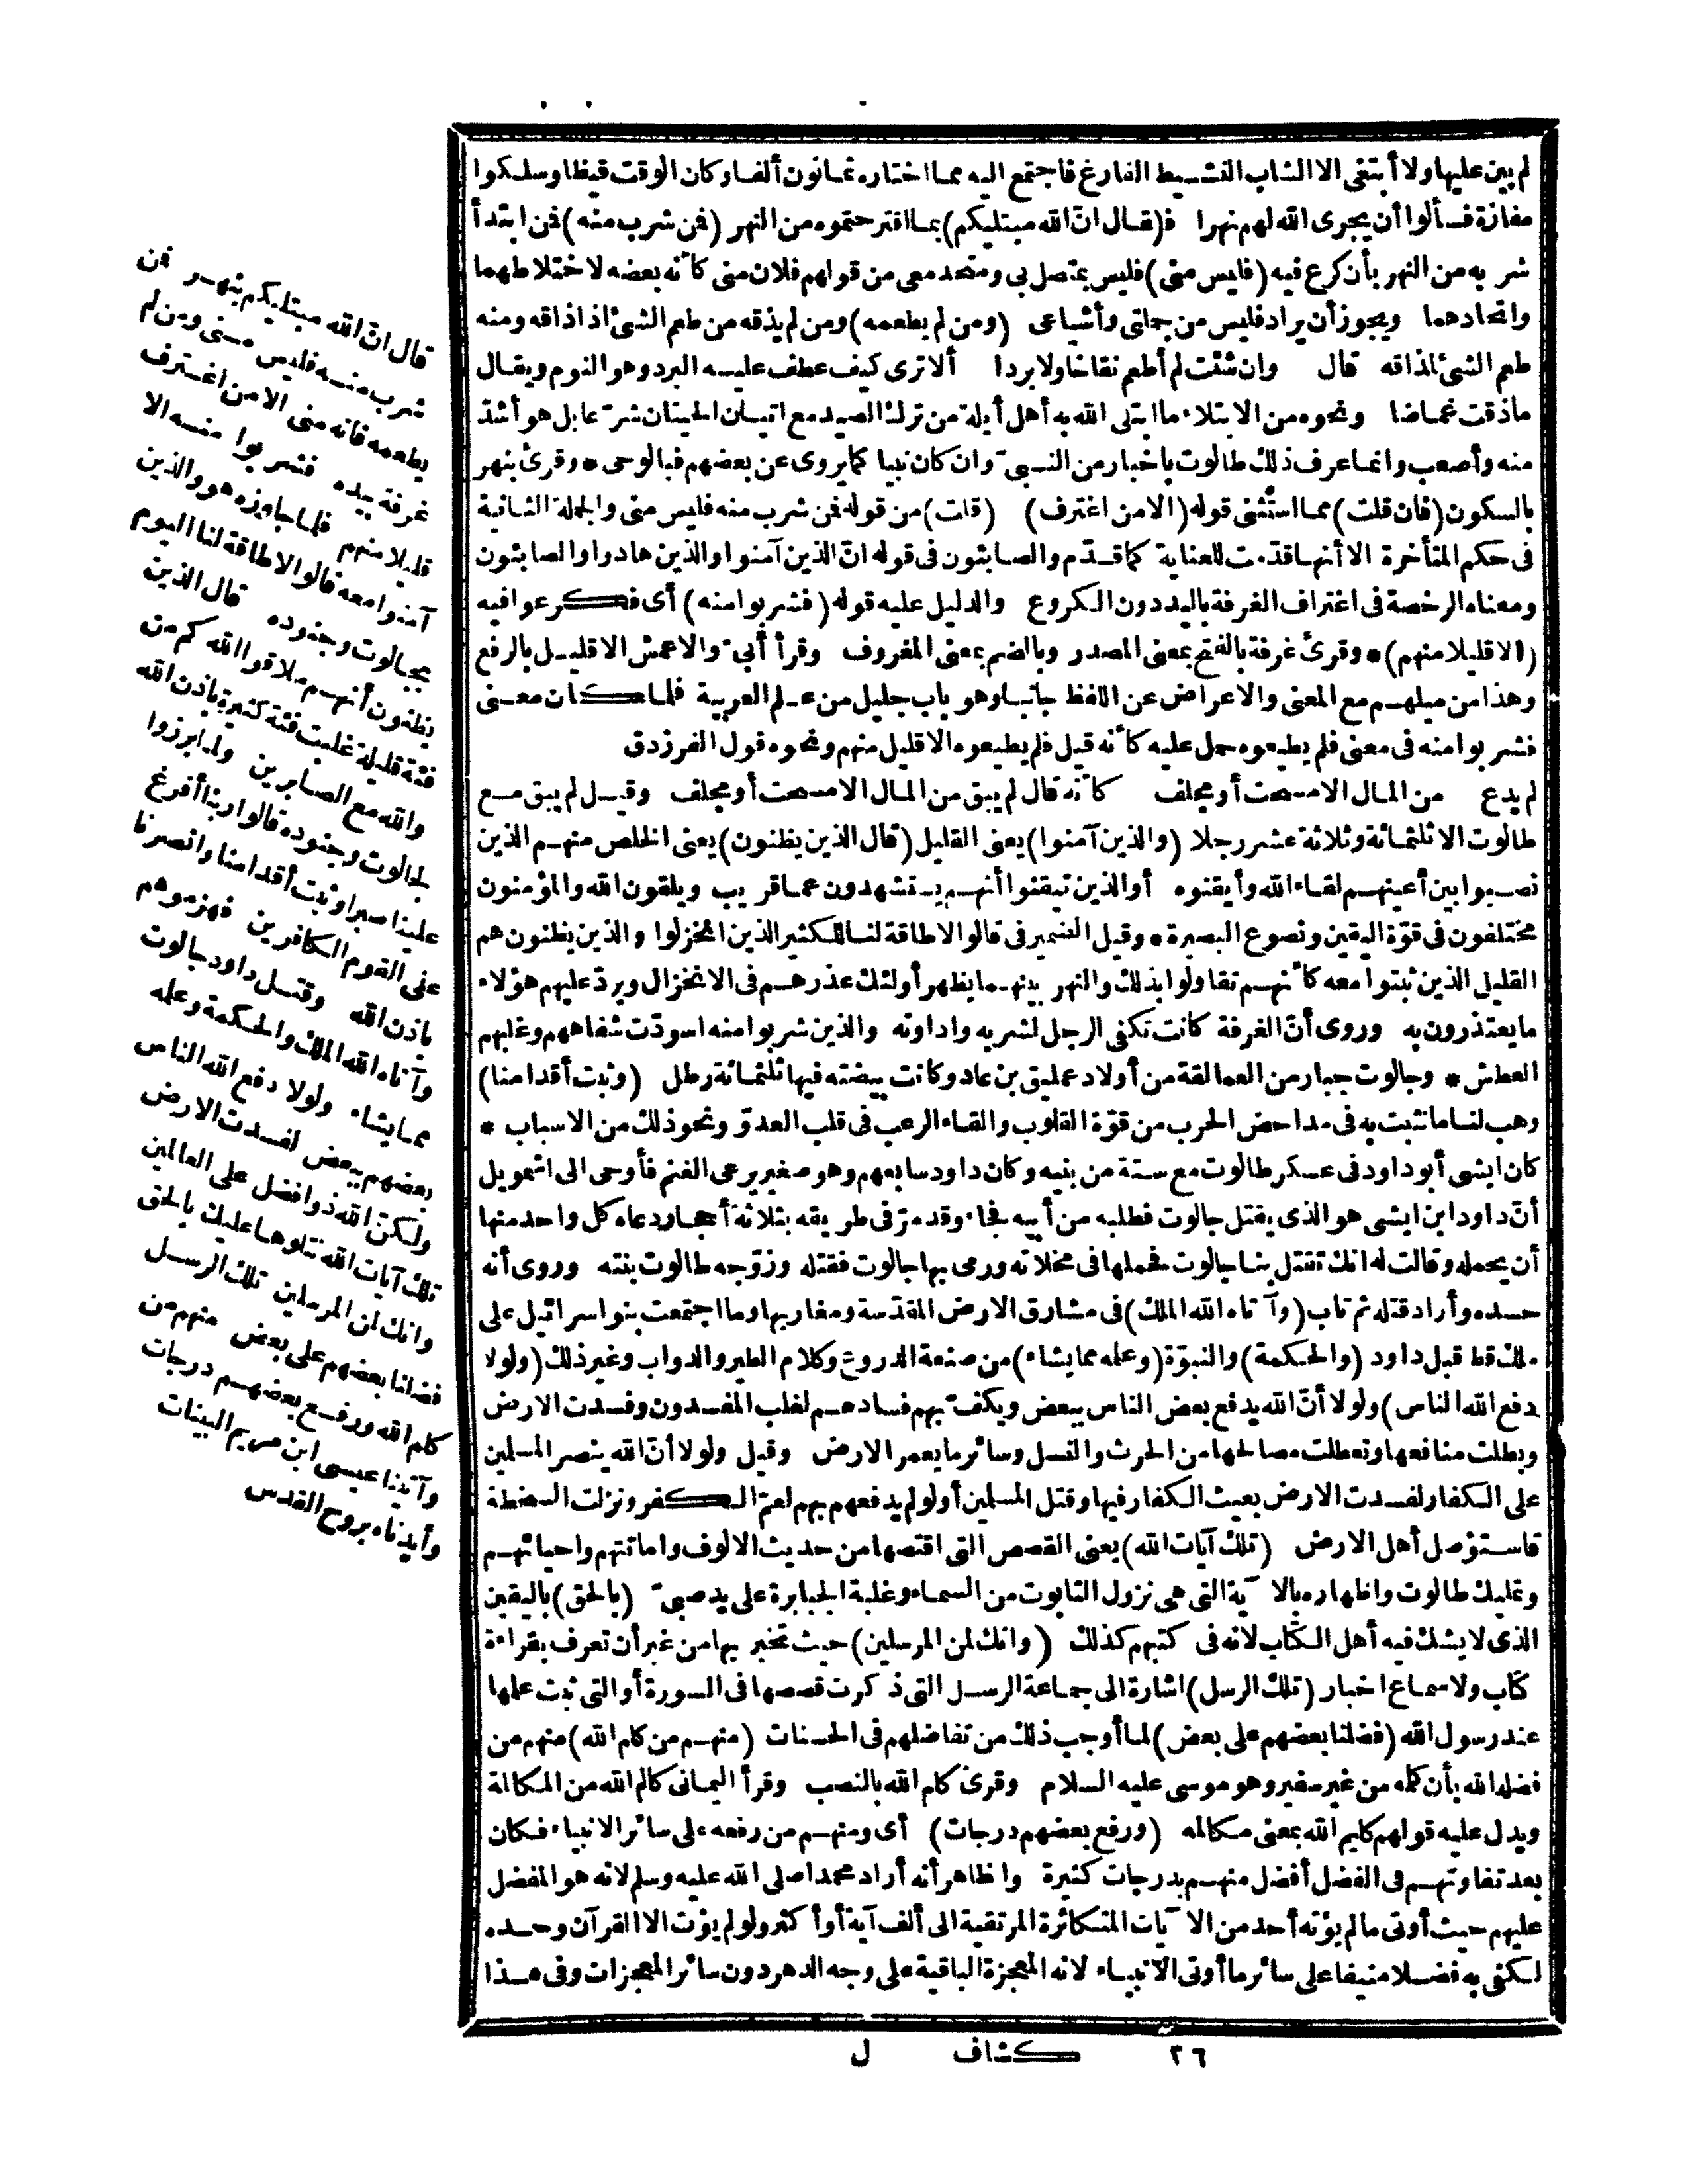 لم يبن عليها ولا أبتغى الا الشاب النشيط الفارغ فاجتمع اليه مما اختاره ثمانون ألفا وكان الوقت قيظا وسلكوا
مفازة فسألوا أن يجرى الله لهم نهرا ف(قال انّ الله مبتليكم) بما اقترحتموه من النهر (فمن شرب منه) فمن ابتدأ
شربه من النهر بأن كرع فيه (فليس منى) فليس بمتصل بى ومتحد معى من قولهم فلان منى كأنه بعضه لاختلاطهما
واتحادهما ويجوز أن يراد فليس من جملتى وأشياعى (ومن لم يطعمه) ومن لم يذقه من طعم الشئ اذا ذاقه ومنه
طعم الشئ لمذاقه قال وان شئت لم أطعم نقاخا ولا بردا ألا ترى كيف عطف عليه البرد وهو النوم ويقال
ماذقت غماضا ونحوه من الابتلاء ما ابتلى الله به أهل أيلة من ترك الصيد مع اتيان الحيتان شرّعا بل هو أشدّ
منه وأصعب وانما عرف ذلك طالوت باخبار من النبىّ وان كان نبيا كما يروى عن بعضهم فبالوحى * وقرئ بنهر
بالسكون (فان قلت) مما استثنى قوله (الا من اغترف) (قلت) من قوله فمن شرب منه فليس منى والجملة الثانية
فى حكم المتأخرة الا أنها قدّمت للعناية كما قدّم والصابئون فى قوله انّ الذين آمنوا والذين هادوا والصابئون
ومعناه الرخصة فى اغتراف الغرفة باليد دون الكروع والدليل عليه قوله (فشربوا منه) أى فكرعوا فيه
(الا قليلا منهم) * وقرئ غرفة بالفتح بمعنى المصدر وبالضم بمعنى المغروف وقرأ أبىّ والاعمش الا قليل بالرفع
وهذا من ميلهم مع المعنى والاعراض عن اللفظ جانبا وهو باب جليل من علم العربية فلما كان معنى
فشربوا منه فى معنى فلم يطيعوه حمل عليه كأنه قيل فلم يطيعوه الا قليل منهم ونحوه قول الفرزدق
لم يدع من المال الا مسحت أو مجلف كأنه قال لم يبق من المال الا مسحت أو مجلف وقيل لم يبق مع
طالوت الا ثلثمائة وثلاثة عشر رجلا (والذين آمنوا) يعنى القليل (قال الذين يظنون) يعنى الخلص منهم الذين
نصبوا بين أعينهم لقاء الله وأيقنوه أو الذين تيقنوا أنهم يستشهدون عما قريب ويلقون الله والمؤمنون
مختلفون فى قوّة اليقين ونصوع البصيرة * وقيل الضمير فى قالوا لا طاقة لنا للكثير الذين انخزلوا والذين يظنون هم
القليل الذين ثبتوا معه كأنهم تقاولوا بذلك والنهر بينهما يظهر أولئك عذرهم فى الانخزال ويردّ عليهم هؤلاء
ما يعتذرون به وروى أنّ الغرفة كانت تكفى الرجل لشربه واداوته والذين شربوا منه اسودّت شفاههم وغلبهم
العطش * وجالوت جبار من العمالقة من أولاد عمليق بن عاد وكانت بيضته فيها ثلثمائة رطل (وثبت أقدامنا)
وهب لنا ما نثبت به فى مداحض الحرب من قوّة القلوب والقاء الرعب فى قلب العدوّ ونحو ذلك من الاسباب *
كان ايشى أبو داود فى عسكر طالوت مع ستة من بنيه وكان داود سابعهم وهو صغير يرعى الغنم فأوحى الى اشمويل
أنّ داود ابن ايشى هو الذى يقتل جالوت فطلبه من أبيه فجاء وقد مرّ فى طريقه بثلاثة أحجار دعاه كل واحد منها
أن يحمله وقالت له انك تقتل بنا جالوت فحملها فى مخلاته ورمى بها جالوت فقتله وزوّجه طالوت بنته وروى أنه
حسده وأراد قتله ثم تاب (وآتاه الله الملك) فى مشارق الارض المقدّسة ومغاربها وما اجتمعت بنو اسرائيل على
ملك قط قبل داود (والحكمة) والنبوّة (وعلمه مما يشاء) من صنعة الدروع وكلام الطير والدواب وغير ذلك (ولولا
دفع الله الناس) ولولا أنّ الله يدفع بعض الناس ببعض ويكفّ بهم فسادهم لغلب المفسدون وفسدت الارض
وبطلت منافعها وتعطلت مصالحها من الحرث والنسل وسائر ما يعمر الارض وقيل ولولا أنّ الله ينصر المسلمين
على الكفار لفسدت الارض بعيث الكفار فيها وقتل المسلمين أو لو لم يدفعهم بهم لعمّ الكفر ونزلت السخطة
فاستؤصل أهل الارض (تلك آيات الله) يعنى القصص التى اقتصها من حديث الالوف واماتتهم واحيائهم
وتمليك طالوت واظهاره بالآية التى هى نزول التابوت من السماء وغلبة الجبابرة على يد صبىّ (بالحق) باليقين
الذى لا يشك فيه أهل الكتاب لانه فى كتبهم كذلك (وانك لمن المرسلين) حيث تخبر بها من غير أن تعرف بقراءة
كتاب ولا سماع اخبار (تلك الرسل) اشارة الى جماعة الرسل التى ذكرت قصصها فى السورة أو التى ثبت علمها
عند رسول الله (فضلنا بعضهم على بعض) لما أوجب ذلك من تفاضلهم فى الحسنات (منهم من كلم الله) منهم من
فضله الله بأن كلمه من غير سفير وهو موسى عليه السلام وقرئ كلم الله بالنصب وقرأ اليمانى كالم الله من المكالمة
ويدل عليه قولهم كليم الله بمعنى مكالمه (ورفع بعضهم درجات) أى ومنهم من رفعه على سائر الانبياء فكان
بعد تفاوتهم فى الفضل أفضل منهم بدرجات كثيرة والظاهر أنه أراد محمدا صلى الله عليه وسلم لانه هو المفضل
عليهم حيث أوتى ما لم يؤته أحد من الآيات المتكاثرة المرتقية الى ألف آية أو أكثر ولو لم يؤت الا القرآن وحده
لكفى به فضلا منيفا على سائر ما أوتى الانبياء لانه المعجزة الباقية على وجه الدهر دون سائر المعجزات وفى هذا
قال انّ الله مبتليكم بنهر فمن
شرب منه فليس منى ومن لم
يطعمه فانه منى الا من اغترف
غرفة بيده فشربوا منه الا
قليلا منهم فلما جاوزه هو والذين
آمنوا معه قالوا لا طاقة لنا اليوم
بجالوت وجنوده قال الذين
يظنون أنهم ملاقوا الله كم من
فئة قليلة غلبت فئة كثيرة باذن الله
والله مع الصابرين ولما برزوا
لجالوت وجنوده قالوا ربنا أفرغ
علينا صبرا وثبت أقدامنا وانصرنا
على القوم الكافرين فهزموهم
باذن الله وقتل داود جالوت
وآتاه الله الملك والحكمة وعلمه
مما يشاء ولولا دفع الله الناس
بعضهم ببعض لفسدت الارض
ولكنّ الله ذو فضل على العالمين
تلك آيات الله نتلوها عليك بالحق
وانك لمن المرسلين تلك الرسل
فضلنا بعضهم على بعض منهم من
كلم الله ورفع بعضهم درجات
وآتينا عيسى ابن مريم البينات
وأيدناه بروح القدس
٢٦ كشاف ل